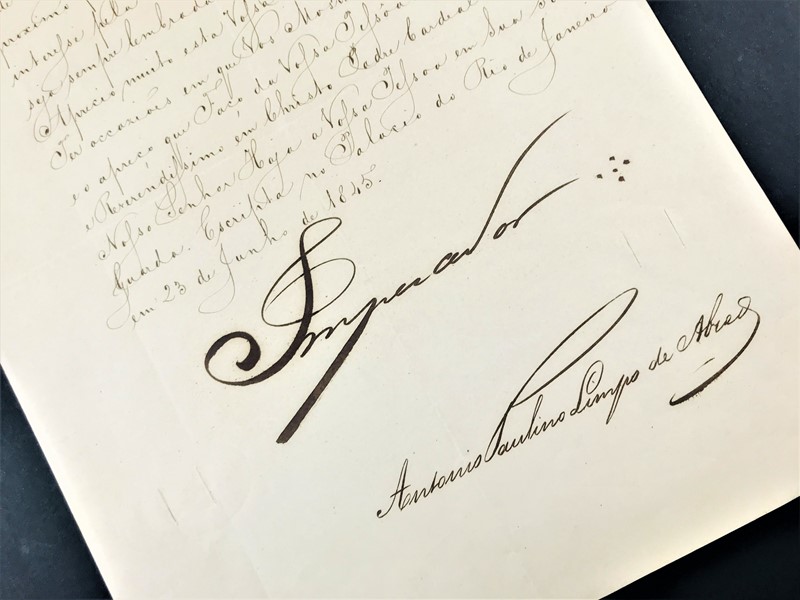 proximo
interesse pela
seja sempre lembrada
Aprecio muito esta Vossa
Ta occaziões em que Vos Mostr
e o apreço que Faço da Vossa Pessôa
e Reverendissimo em Christo Padre Cardeal
Nosso Senhor Haja a Vossa Pessoa em Sua
Guarda. Escripta no Palacio do Rio de Janeiro
em 23 de Junho de 1845.
Imperador
Antonio Paulino Limpo de Abreo